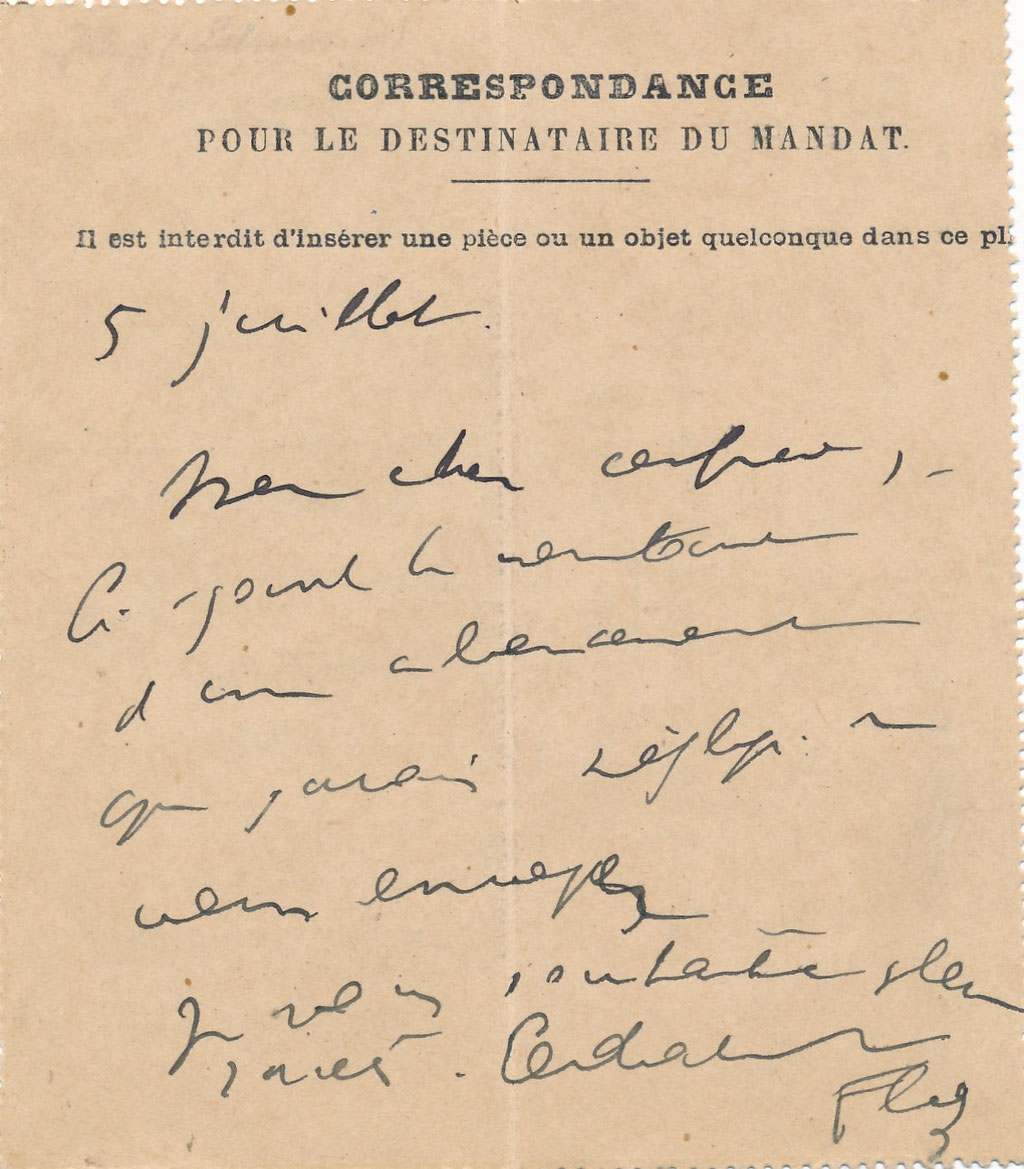 CORRESPONDANCE
POUR LE DESTINATAIRE DU MANDAT.
Il est interdit d'insérer une pièce ou un objet quelconque dans ce pli
5 juillet.
Mon cher confrère,
Ci-joint le montant
d'un abonnement
que j'avais négligé de
vous envoyer
Je vous souhaite plein
succès. Cordialement